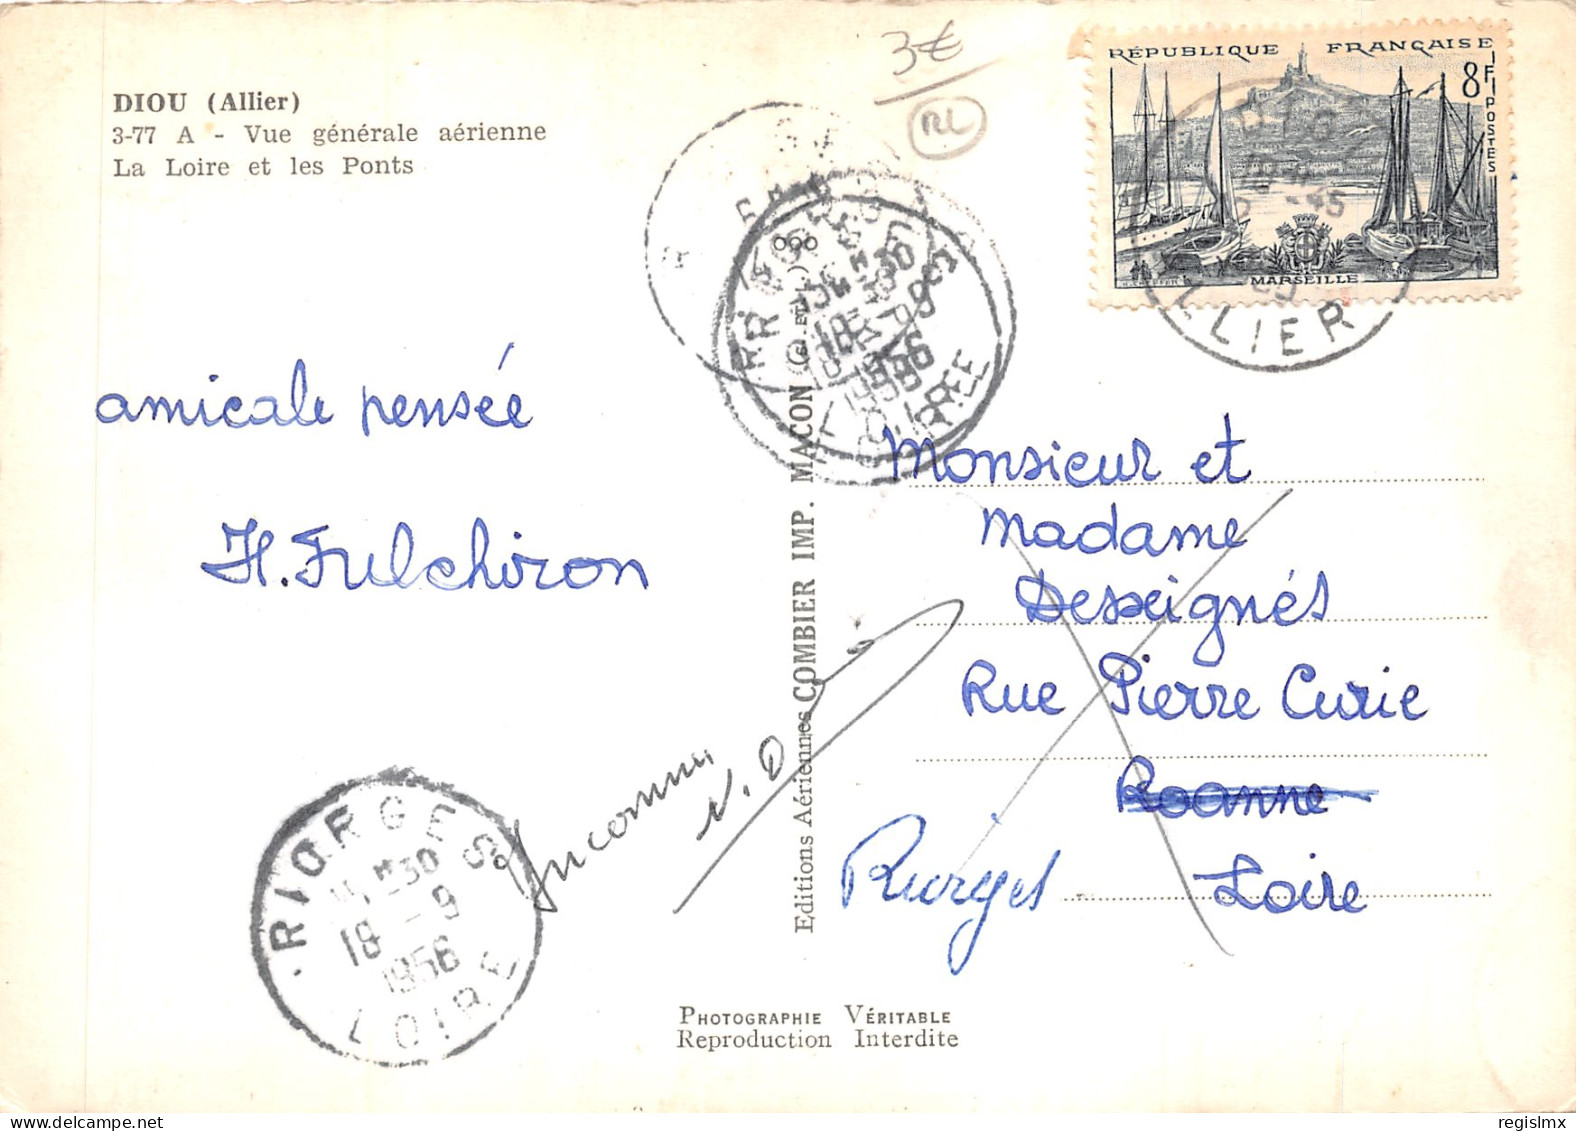 DIOU (Allier)
3-77 A - Vue générale aérienne
La Loire et les Ponts
3€
RL
RÉPUBLIQUE FRANÇAISE
8F
POSTES
MARSEILLE
-45
ALLIER
RIORGES
1956
LOIRE
amicale pensée
H. Fulchiron
Editions Aériennes COMBIER IMP. MACON
Monsieur et
Madame
Desseignés
Rue Pierre Curie
Roanne
Riorges
Loire
Inconnu
RIORGES
30
18 - 9
1956
LOIRE
PHOTOGRAPHIE VÉRITABLE
Reproduction Interdite
regislmx